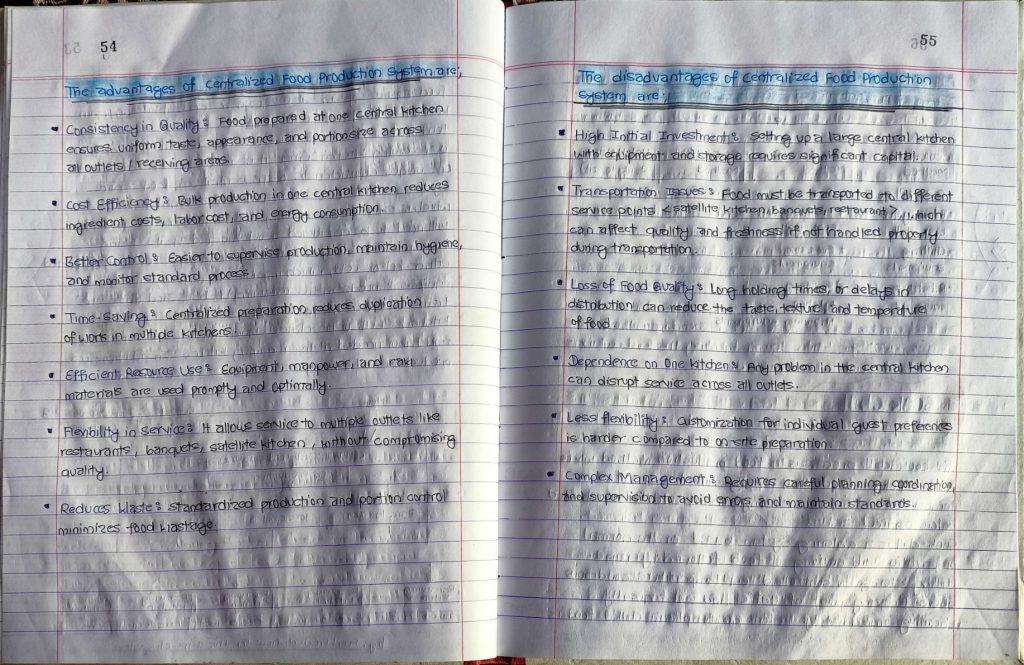 54
The advantages of Centralized Food Production System are;
• Consistency in Quality : Food prepared at one central kitchen
ensures uniform taste, appearance, and portion size across
all outlets / receiving areas.
• Cost Efficiency : Bulk production in one central kitchen reduces
ingredient costs, labor cost, and energy consumption.
• Better Control : Easier to supervise production, maintain hygiene,
and monitor standard process.
• Time-Saving : Centralized preparation reduces duplication
of work in multiple kitchens.
• Efficient Resource Use : Equipment, manpower, and raw
materials are used promptly and optimally.
• Flexibility in Service : It allows service to multiple outlets like
restaurants, banquets, satellite kitchen, without compromising
quality.
• Reduces Waste : standardized production and portion control
minimizes food wastage.
55
The disadvantages of Centralized Food Production
System are;
• High Initial Investment : Setting up a large central kitchen
with equipment and storage requires significant capital.
• Transportation Issues : Food must be transported to different
service points <satellite kitchen, banquets, restaurant>, which
can affect quality and freshness if not handled properly
during transportation.
• Loss of Food Quality : Long holding times, or delays in
distribution can reduce the taste, texture, and temperature
of food.
• Dependence on One Kitchen : Any problem in the central kitchen
can disrupt service across all outlets.
• Less flexibility : Customization for individual guest preferences
is harder compared to on-site preparation.
• Complex Management : Requires careful planning, coordination,
and supervision to avoid errors and maintain standards.